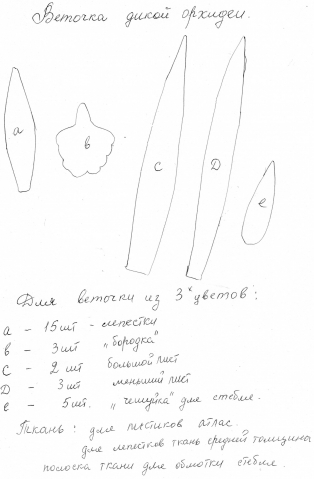 Веточка дикой орхидеи.
а
в
с
D
е
Для веточки из 3х цветов:
а - 15 шт - лепестки
в - 3 шт "бородка"
с - 2 шт большой лист
D - 3 шт меньший лист
е - 5 шт. "чешуйка" для стебля.
Ткань: для листиков атлас.
для лепестков ткань средней толщины
полоска ткани для обмотки стебля.